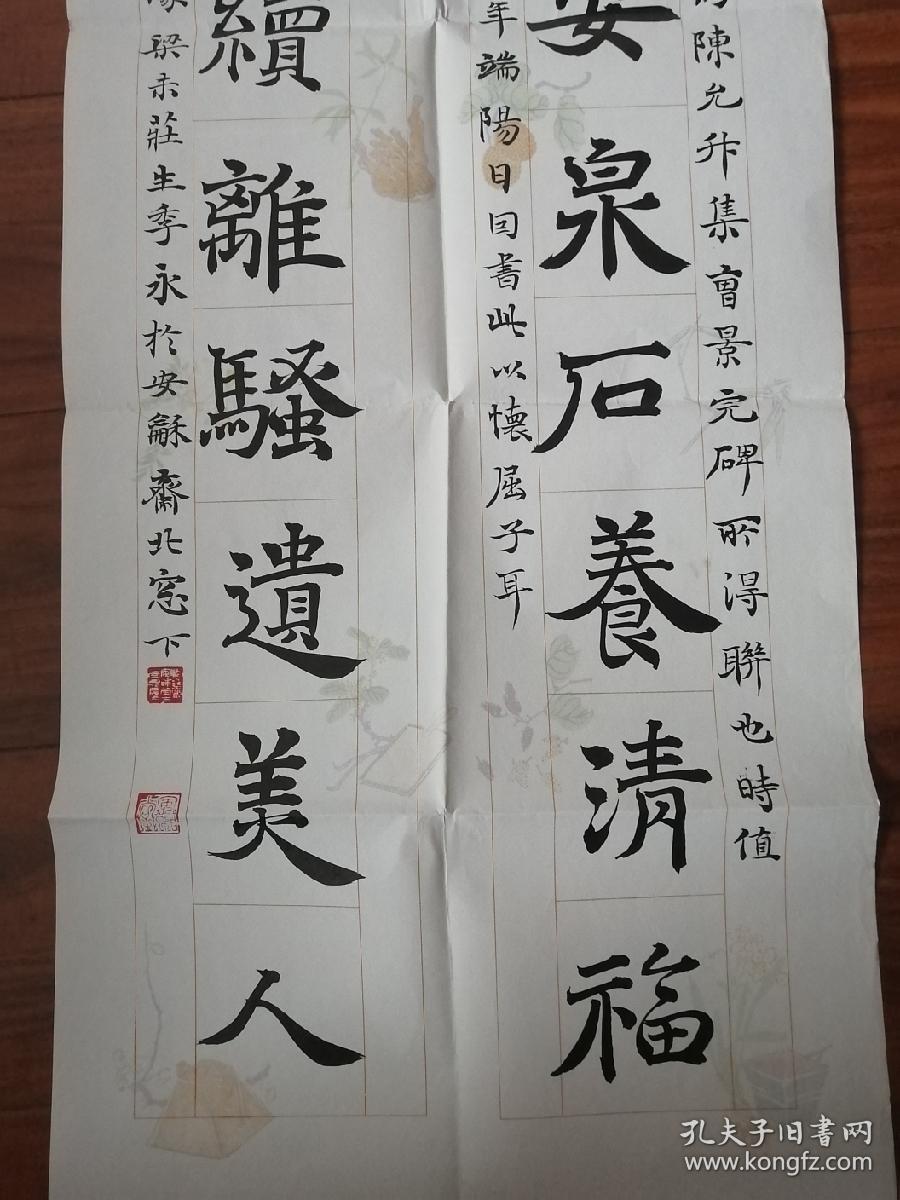 陳允升集曹景完碑所得聯也時值
泉石養清福
年端陽日囙書此以懷屈子耳
續離騷遺美人
梁未莊生季永於安龢齋北窓下
孔夫子旧书网
www.kongfz.com